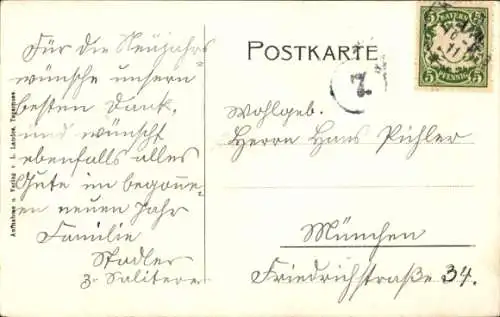 Für die Neujahrs
wünsche unsern
besten Dank,
und wünscht
ebenfalls alles
Gute im begonne-
en neuen Jahr
Familie
Stadler
z. Saliterer
Aufnahme u. Verlag v. L. Landes, Tegernsee
POSTKARTE
7
5 BAYERN 5
5 PFENNIG 5
Wohlgeb.
Herrn Hans Pichler
München
Friedrichstraße 34.